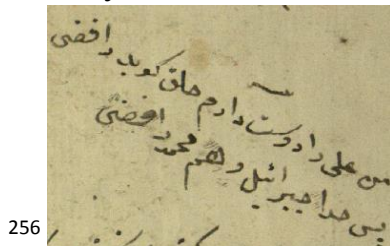 من علی را دوست دارم خلق گوید رافضی
پس خدا جبرائیل و هم محمد رافضی
256